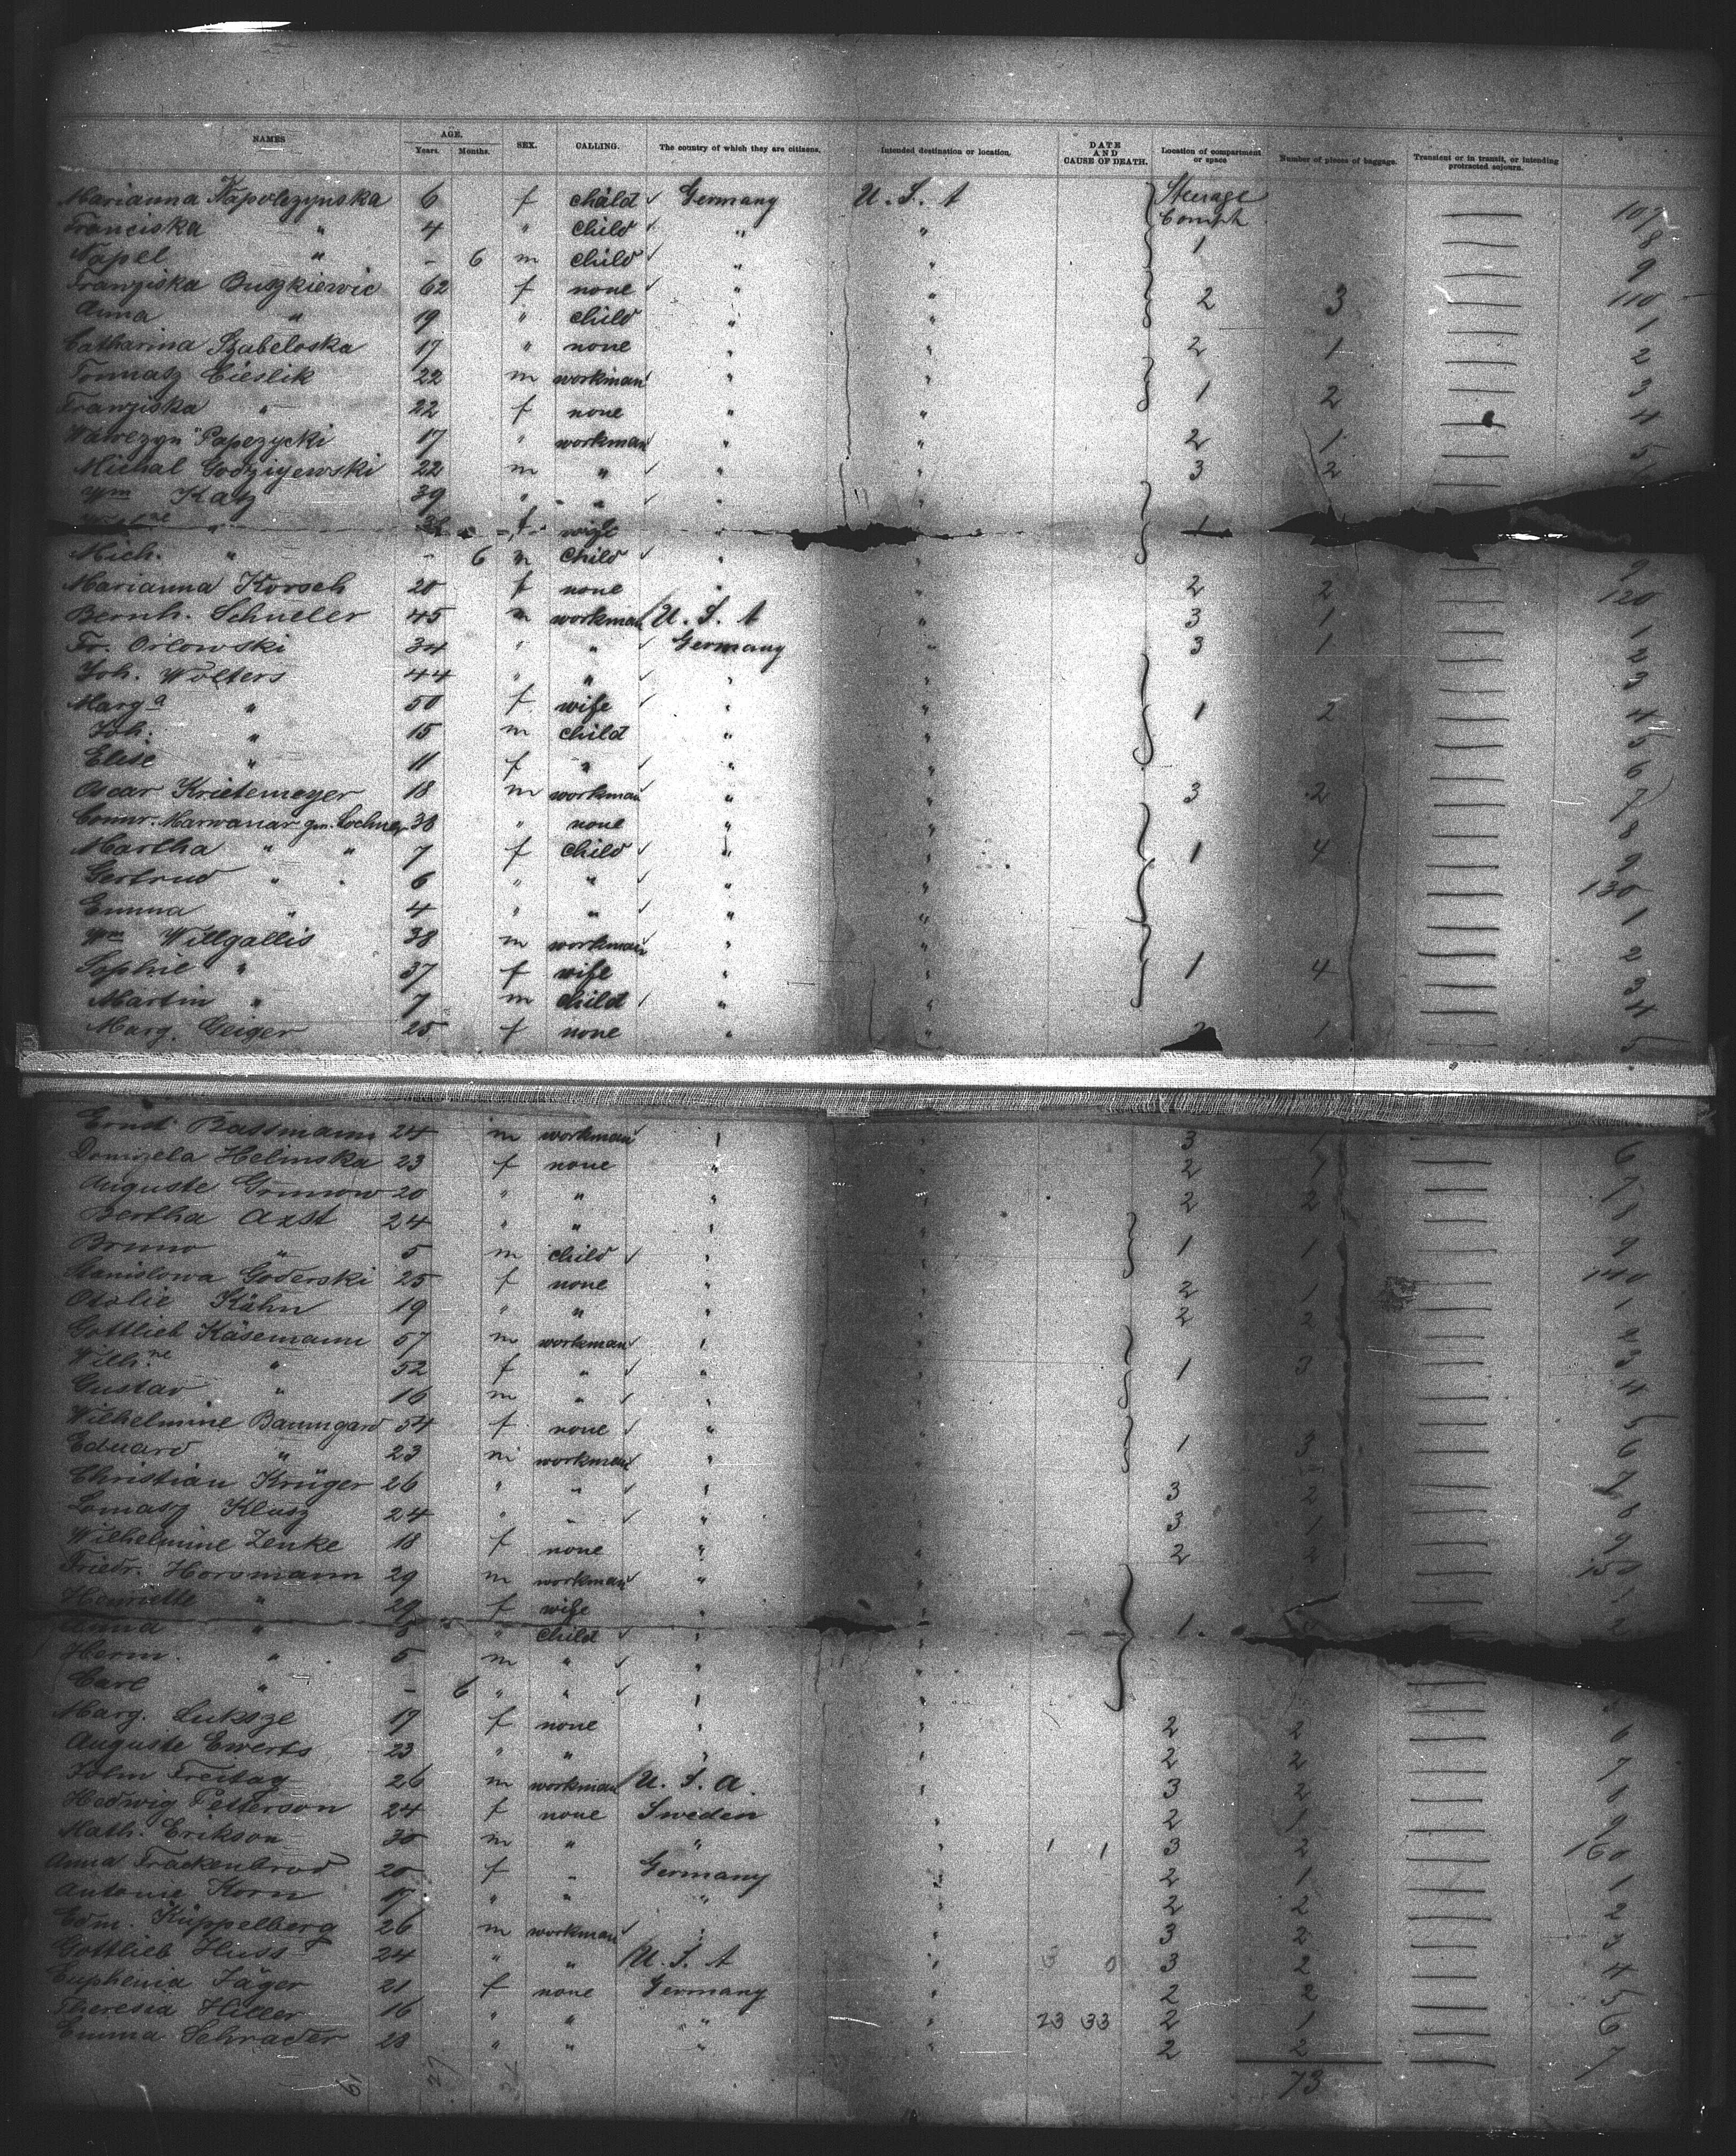 NAMES AGE. Years. Months. SEX. CALLING. The country of which they are citizens. Intended destination or location. DATE AND CAUSE OF DEATH. Location of compartment or space Number of pieces of baggage. Transient or in transit, or intending protracted sojourn.
Marianna Napolczynska 6 f child Germany U. S. A Steerage 107
Franciska " 4 " child " " Comph 8
" - 6 m child " " 1 9
Franziska Buszkiewic 62 f none " " 2 3 110
Anna " 19 " child " " 1
Catharina Szabeloska 17 " none " " 2 1 2
Tomasz Cieslik 22 m workman " " 1 2 3
Franziska " 22 f none " " 4
Wawrzyn Papczycki 17 " workman " " 2 1 5
Michal Godziyewski 22 m " " " 3 2
Wm Katz 39 " " " "
" f wife " 1
Mich. " - 6 m child " " 9
Marianna Korsch 20 f none " 2 2 120
Bernh. Schueler 45 m workman U. S. A " 3 1 1
Fr. Orlowski 34 " " Germany " 3 1 2
Joh. Wolters 44 " " " " 3
Marga " 50 f wife " " 1 2 4
Joh. " 15 m child " " 5
Elise " 11 f " " " 6
Oscar Krietemeyer 18 m workman " " 3 2 7
Lochner 38 " none " " 8
Martha " " 7 f child " " 1 4 9
Gertrud " " 6 " " " " 130
Emma " 4 " " " " 1
Wm Willgallis 38 m workman " " 2
Sophie " 37 f wife " " 1 4 3
Martin " 7 m child " " 4
Marg. Geiger 25 f none " " 2 1 5
Ernst Bassmann 24 m workman " " 3 1 6
Domizela Helmska 23 f none " " 2 1 7
Auguste Grunow 20 " " " " 2 2 8
Bertha Axst 24 " " " " 9
Bruno " 5 m child " " 1 1 140
Stanislowa Goderski 25 f none " " 2 1 1
Otolie Kühn 19 " " " " 2 2 2
Gottlieb Käsemann 57 m workman " " 3
Wilh.ne " 52 f " " " 1 3 4
Gustav " 16 m " " "
Wilhelmine Baumgard 54 f none " " 5
Eduard " 23 m workman " " 1 3 6
Christian Krüger 26 " " " " 3 2 7
Lomasz Klusz 24 " " " " 3 1 8
Wilhelmine Zenke 18 f none " " 2 2 9
Friedr. Horsmann 29 m workman " " 150
Henriette " 29 f wife " "
" " child " " 1
Herm. " 5 m " " "
Carl " - 6 " " " "
Marg. Luksze 19 f none " " 2 2 6
Auguste Ewerts 23 " " " " 2 2 7
John Freitag 26 m workman U. S. A. " 3 2 8
Hedwig Petterson 24 f none Sweden " 2 1 9
Math. Erikson 30 m " " " 1 1 3 2 160
Anna Frackenbrod 20 f " Germany " 2 1 1
Antonie Korn 17 " " " " 2 2 2
Edm. Küppelberg 26 m workman " " 3 2 3
Gottlieb Huss 24 " " U. S. A " 3 2 4
Euphemia Jäger 21 f none Germany " 2 2 5
Theresia Hiller 16 " " " " 23 33 2 1 6
Emma Schrader 28 " " " " 2 2 7
73